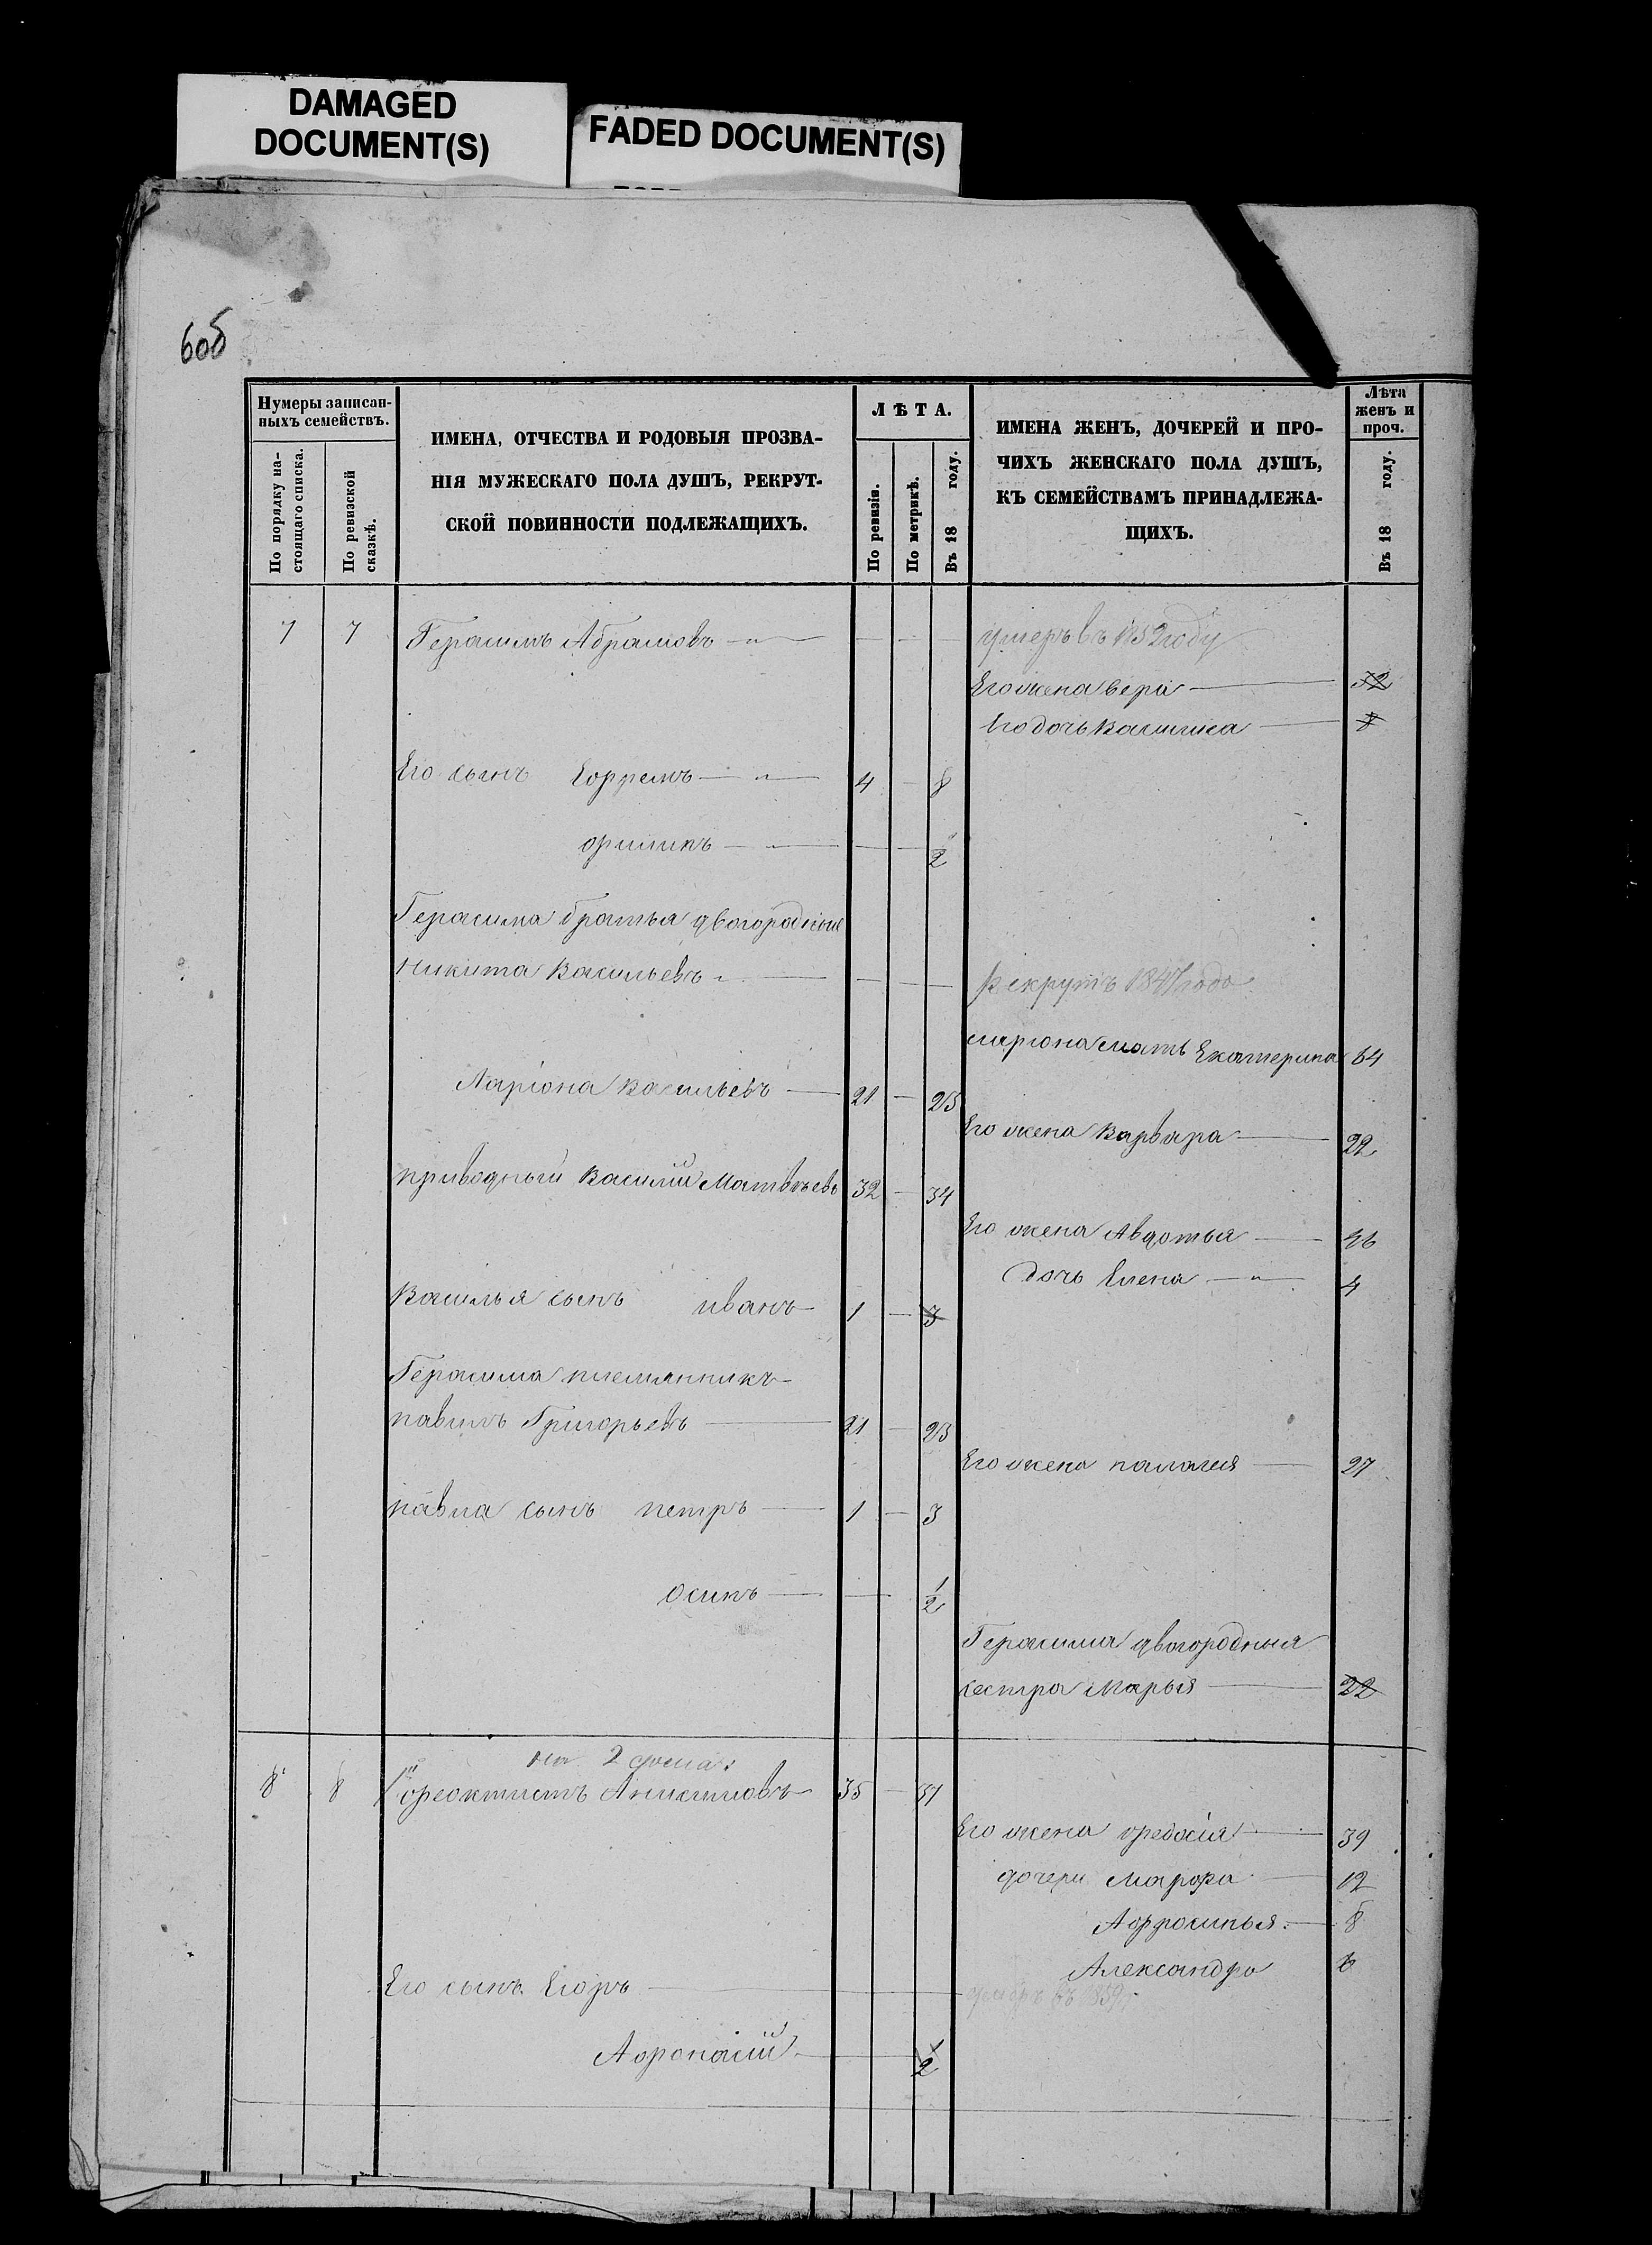 DAMAGED
DOCUMENT(S)
FADED DOCUMENT(S)
60б
Нумеры записан-
ныхъ семействъ.
По порядку на-
стоящаго списка.
По ревизской
сказкѣ.
ИМЕНА, ОТЧЕСТВА И РОДОВЫЯ ПРОЗВА-
НІЯ МУЖЕСКАГО ПОЛА ДУШЪ, РЕКРУТ-
СКОЙ ПОВИННОСТИ ПОДЛЕЖАЩИХЪ.
ЛѢТА.
По ревизіи.
По метрикѣ.
Въ 18 году.
ИМЕНА ЖЕНЪ, ДОЧЕРЕЙ И ПРО-
ЧИХЪ ЖЕНСКАГО ПОЛА ДУШЪ,
КЪ СЕМЕЙСТВАМЪ ПРИНАДЛЕЖА-
ЩИХЪ.
Лѣта
женъ и
проч.
Въ 18 году.
7 7 Герасимъ Абрамовъ — — — умеръ въ 1852 году
Его жена вера — 32
Его дочь Василиса — 8
Его сынъ Ефремъ — 4 — 8
филипъ — — — 2
Герасима братья двоюродные
Никита Васильевъ — — — рекрутъ 1847 года
Лариона мать Екатерина 64
Ларіона Васильевъ — 21 — 23
Его жена Варвара — 22
приводный Василій Матвѣевъ 32 — 34
Его жена Авдотья — 36
дочь Елена — 4
Василья сынъ иванъ — 1 — 3
Герасима племянникъ
павелъ Григорьевъ — 21 — 23
Его жена палагея — 27
павла сынъ петръ — 1 — 3
осипъ — — 1/2
Герасима двоюродныя
сестра Марья — 22
на 2
8 8 феоктистъ Анисимовъ — 35 — 37
Его жена федосія — 39
дочери Марфа — 12
Афросинья — 8
Александра 6
Его сынъ Егоръ — умеръ въ
Афонасій — 1/2